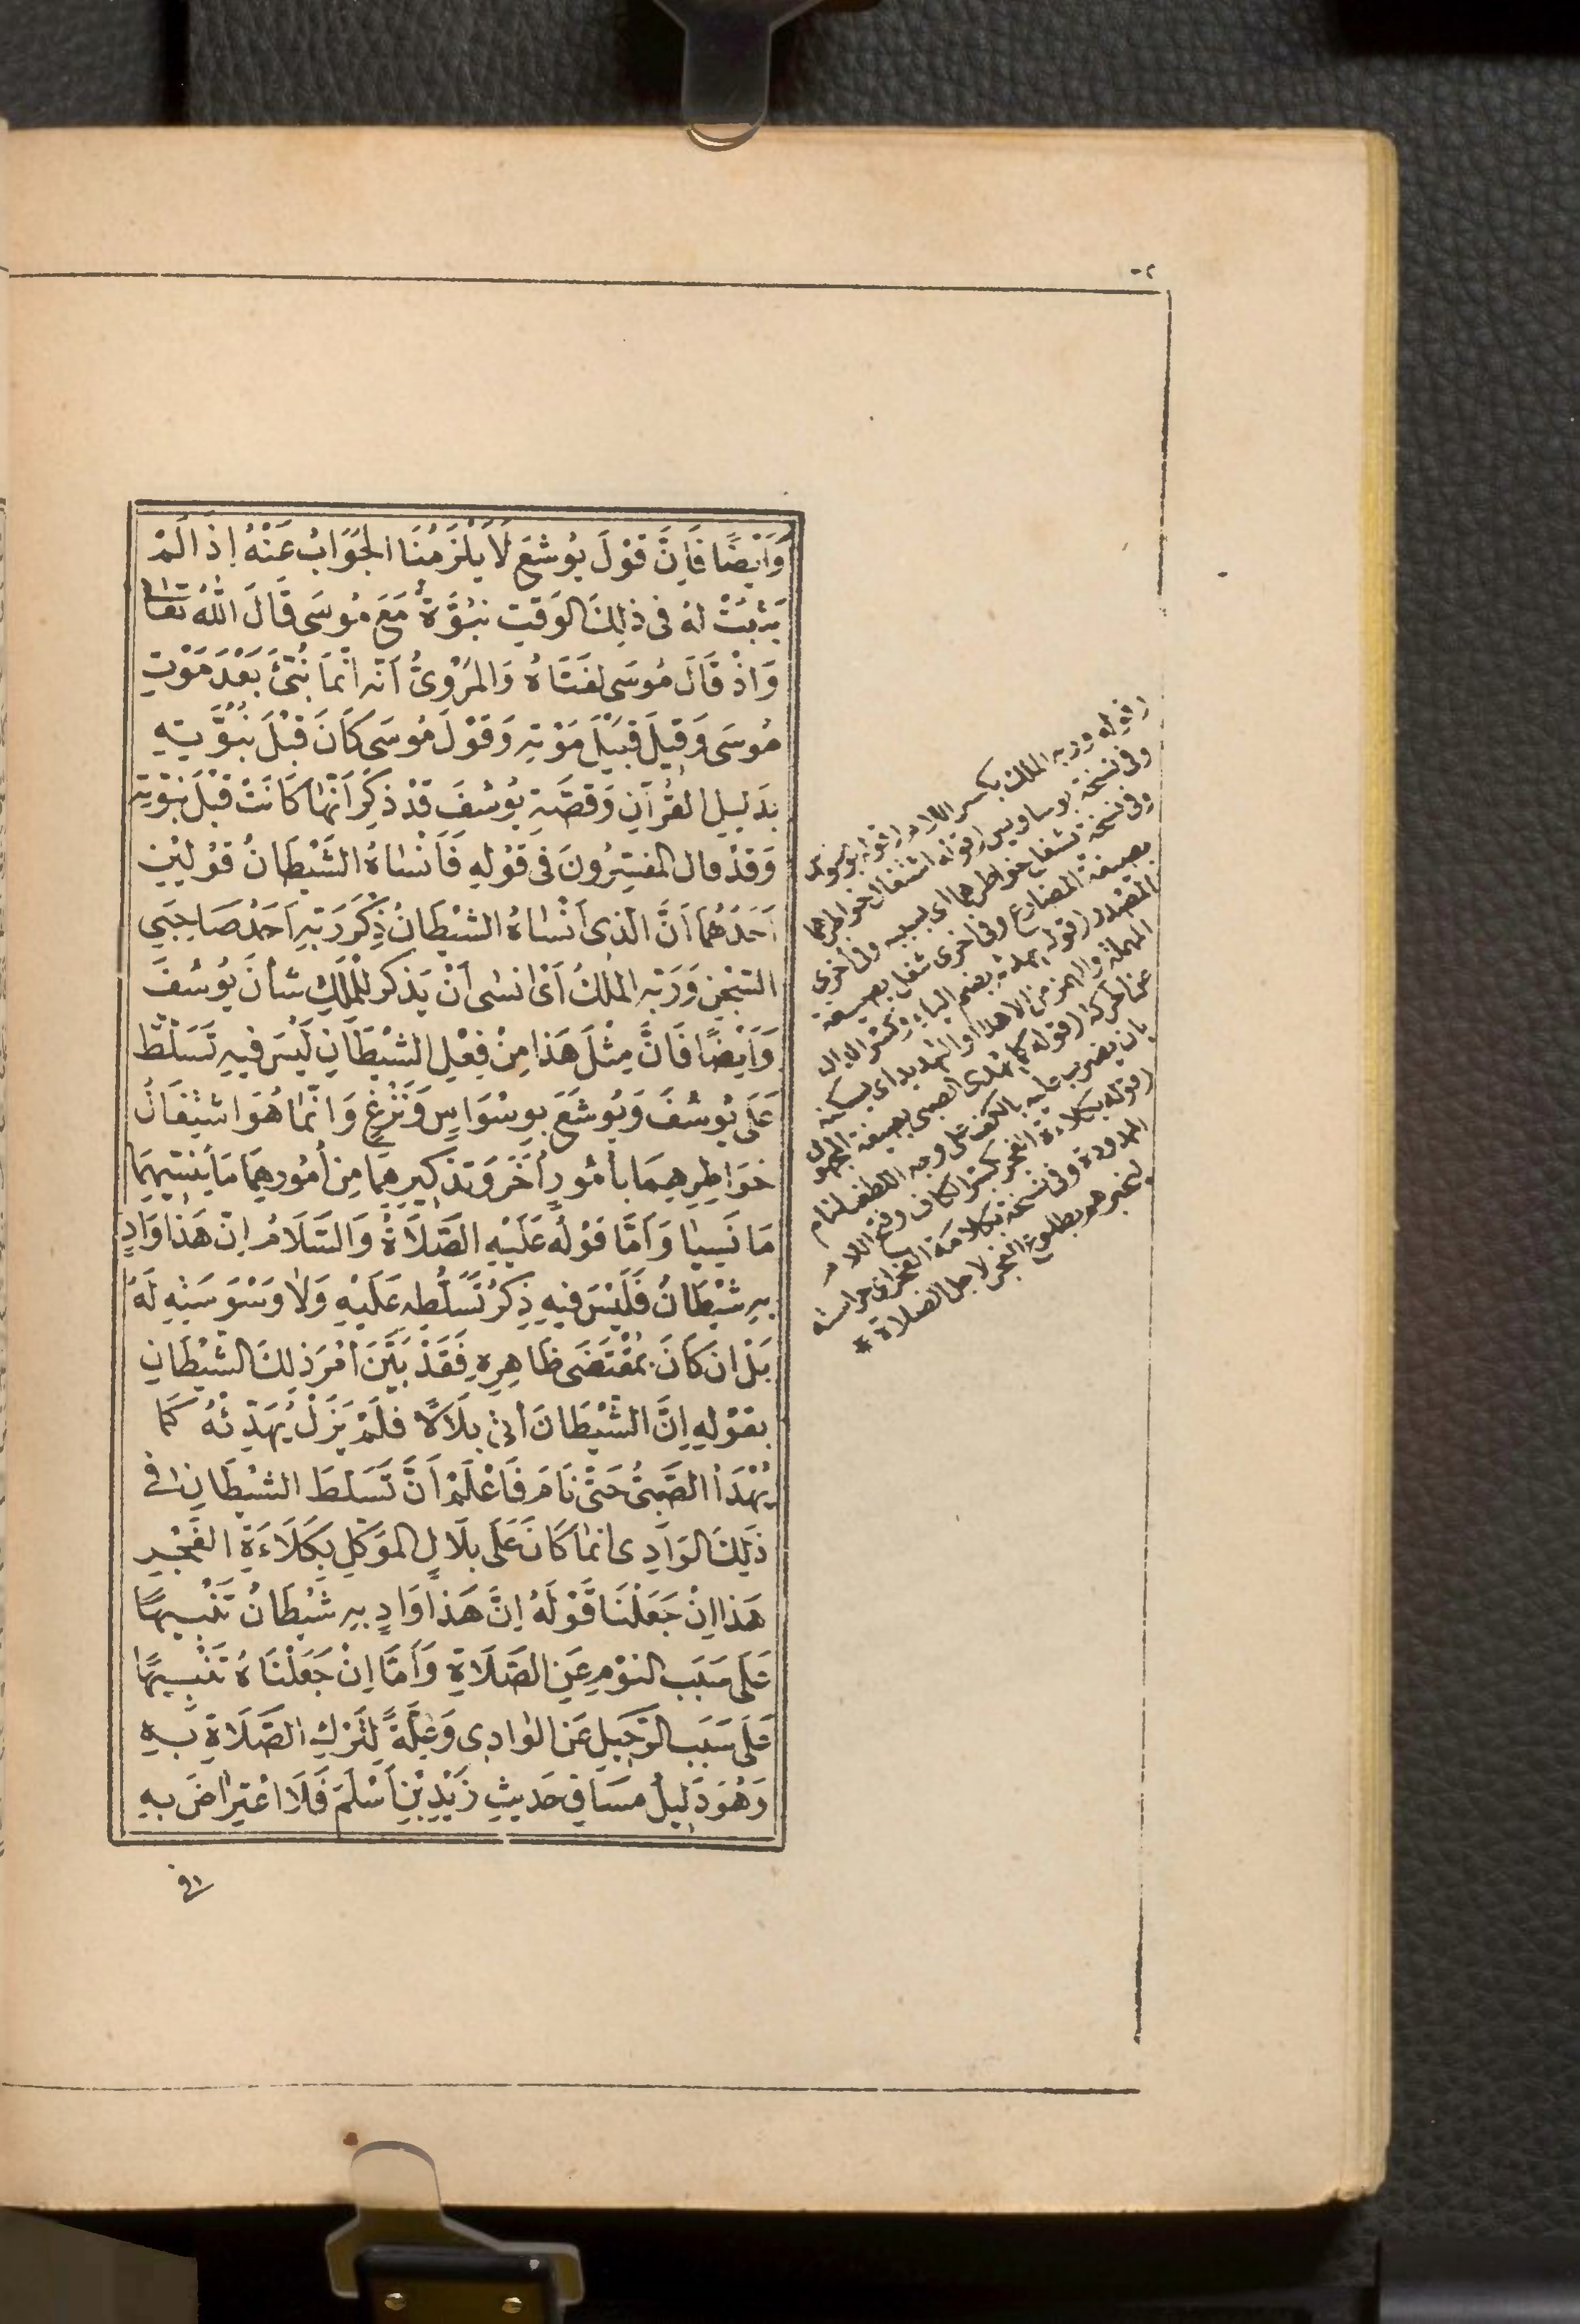 وَاَيْضًا فَاِنَّ قَوْلَ يُوشَعَ لَا يَلْزَمُنَا الْجَوَابُ عَنْهُ اِذَا لَمْ
يَثْبُتْ لَهُ فى ذٰلِكَ الوَقتِ نُبُوَّةٌ مَعَ مُوسَى قَالَ اللهُ تَعَالٰى
وَاِذْ قَالَ مُوسَى لِفَتَاهُ وَالمَرْوِىُّ اَنَّهُ اِنَّمَا نُبِّئَ بَعْدَ مَوْتِ
مُوسَى وَقِيلَ قُبَيْلَ مَوْتِهِ وَقَوْلَ مُوسَى كَانَ قَبْلَ نُبُوَّتِهِ
بِدَلِيلِ القُرْآنِ وَقِصَّةِ يُوسُفَ قَدْ ذُكِرَ اَنَّهَا كَانَتْ قَبْلَ نُبُوَّتِهِ
وَقَدْ قال المُفَسِّرُونَ فى قَوْلِهِ فَاَنْسَاهُ الشَّيْطَانُ قَوْلَيْنِ
اَحَدُهُمَا اَنَّ الَّذِى اَنْسَاهُ الشَّيْطَانُ ذِكْرَ رَبِّهِ اَحَدُ صَاحِبَيِ
السِّجْنِ وَرَبُّهُ المَلِكُ اَىْ اَنسٰى اَنْ يَذكُرَ لِلْمَلِكِ شَأنَ يُوسُفَ
وَاَيْضًا فَاِنَّ مِثْلَ هَذا مِنْ فِعْلِ الشَّيْطَانِ لَيْسَ فِيهِ تَسَلُّطٌ
عَلَى يُوسُفَ وَيُوشَعَ بِوِسْوَاسٍ وَنَزْغٍ وَاِنَّمَا هُوَ اشْتِغَالُ
خَوَاطِرِهِمَا بأُمُورٍ اُخَرَ وَتَذْكِيرِهِمَا مِنْ اُمُورِهِمَا مَا يُنْسِيهِمَا
مَا نَسِيا وَاَمَّا قَوْلُهُ عَلَيْهِ الصَّلَاةُ وَالسَّلَامُ اِنَّ هَذا وَادٍ
بِهِ شَيْطَانٌ فَلَيْسَ فِيهِ ذِكْرُ تَسَلُّطِهِ عَلَيْهِ وَلَا وَسْوَسَتِهِ لَهُ
بَلْ اِنْ كَانَ بِمُقْتَضَى ظَاهِرِهِ فَقَدْ بَيَّنَ اَمْرَ ذٰلِكَ الشَّيْطَانِ
بِقَوْلِهِ اِنَّ الشَّيْطَانَ اَتَى بِلَالًا فَلَمْ يَزَلْ يُهَدِّئُهُ كَمَا
يُهْدَأُ الصَّبِىُّ حَتَّى نَامَ فَاعْلَمْ اَنَّ تَسَلُّطَ الشَّيْطَانِ فى
ذٰلِكَ الوَادِى اِنَّمَا كَانَ عَلَى بِلَالٍ المُوَكَّلِ بِكَلَاءَةِ الفَجْرِ
هَذا اِنْ جَعَلْنَا قَوْلَهُ اِنَّ هَذا وَادٍ بِهِ شَيْطَانٌ تَنْبِيهًا
عَلَى سَبَبِ النَّوْمِ عَنِ الصَّلَاةِ وَاَمَّا اِنْ جَعَلْنَاهُ تَنْبِيهًا
عَلَى سَبَبِ الرَّحِيلِ عَنِ الوَادِى وَعِلَّةً لِتَرْكِ الصَّلَاةِ بِهِ
وَهُوَ دَلِيلُ مَسَاقِ حَدِيثِ زَيْدِ بْنِ اَسْلَمَ فَلَا اعْتِرَاضَ بِهِ
(قوله وربه الملك بكسر اللام
وفى نسخة بوساويس (قوله اشتغال خواطرهما
وفى نسخة شغل خواطرهما اى بسببه وفى أخرى
بصيغة المضارع وفى اخرى شغل بصيغة
المصدر (قوله يهدئه بضم الياء وكسر الدال
المهملة والهمز من الاهداء او التهديد اى يسكنه
عن حركة (قوله كما يهدئ الصبى بصيغة المجهول
بان يضرب عليه بالكف على وجه اللطف لينام
(قوله بكلاءة الفجر بكسر الكاف وفتح اللام
الممدودة وفى نسخة بكلاءة الفجر اى حراسته
ليخبرهم بطلوع الفجر لاجل الصلاة *